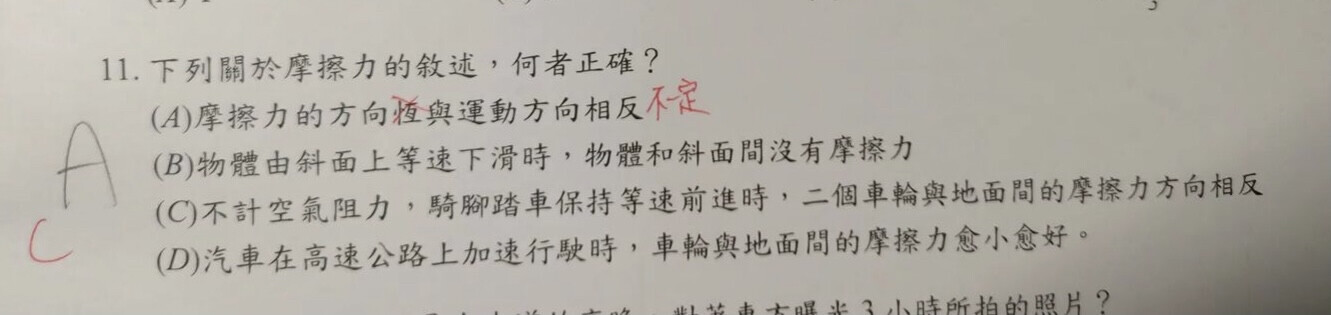 11. 下列關於摩擦力的敘述，何者正確？
(A)摩擦力的方向恆與運動方向相反 不一定
(B)物體由斜面上等速下滑時，物體和斜面間沒有摩擦力
A
(C)不計空氣阻力，騎腳踏車保持等速前進時，二個車輪與地面間的摩擦力方向相反
C
(D)汽車在高速公路上加速行駛時，車輪與地面間的摩擦力愈小愈好。
曝光3小時所拍的照片？